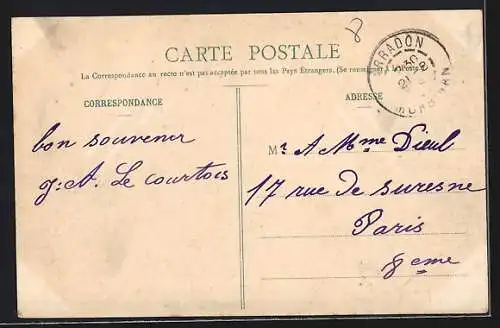 8
CARTE POSTALE
La Correspondance au recto n'est pas acceptée par tous les Pays Étrangers. (Se renseigner à la Poste)
CORRESPONDANCE
ADRESSE
ARRADON
MORBIHAN
bon souvenir
J. A. Le courtois
M: A Mme Dieul
17 rue de suresne
Paris
8eme